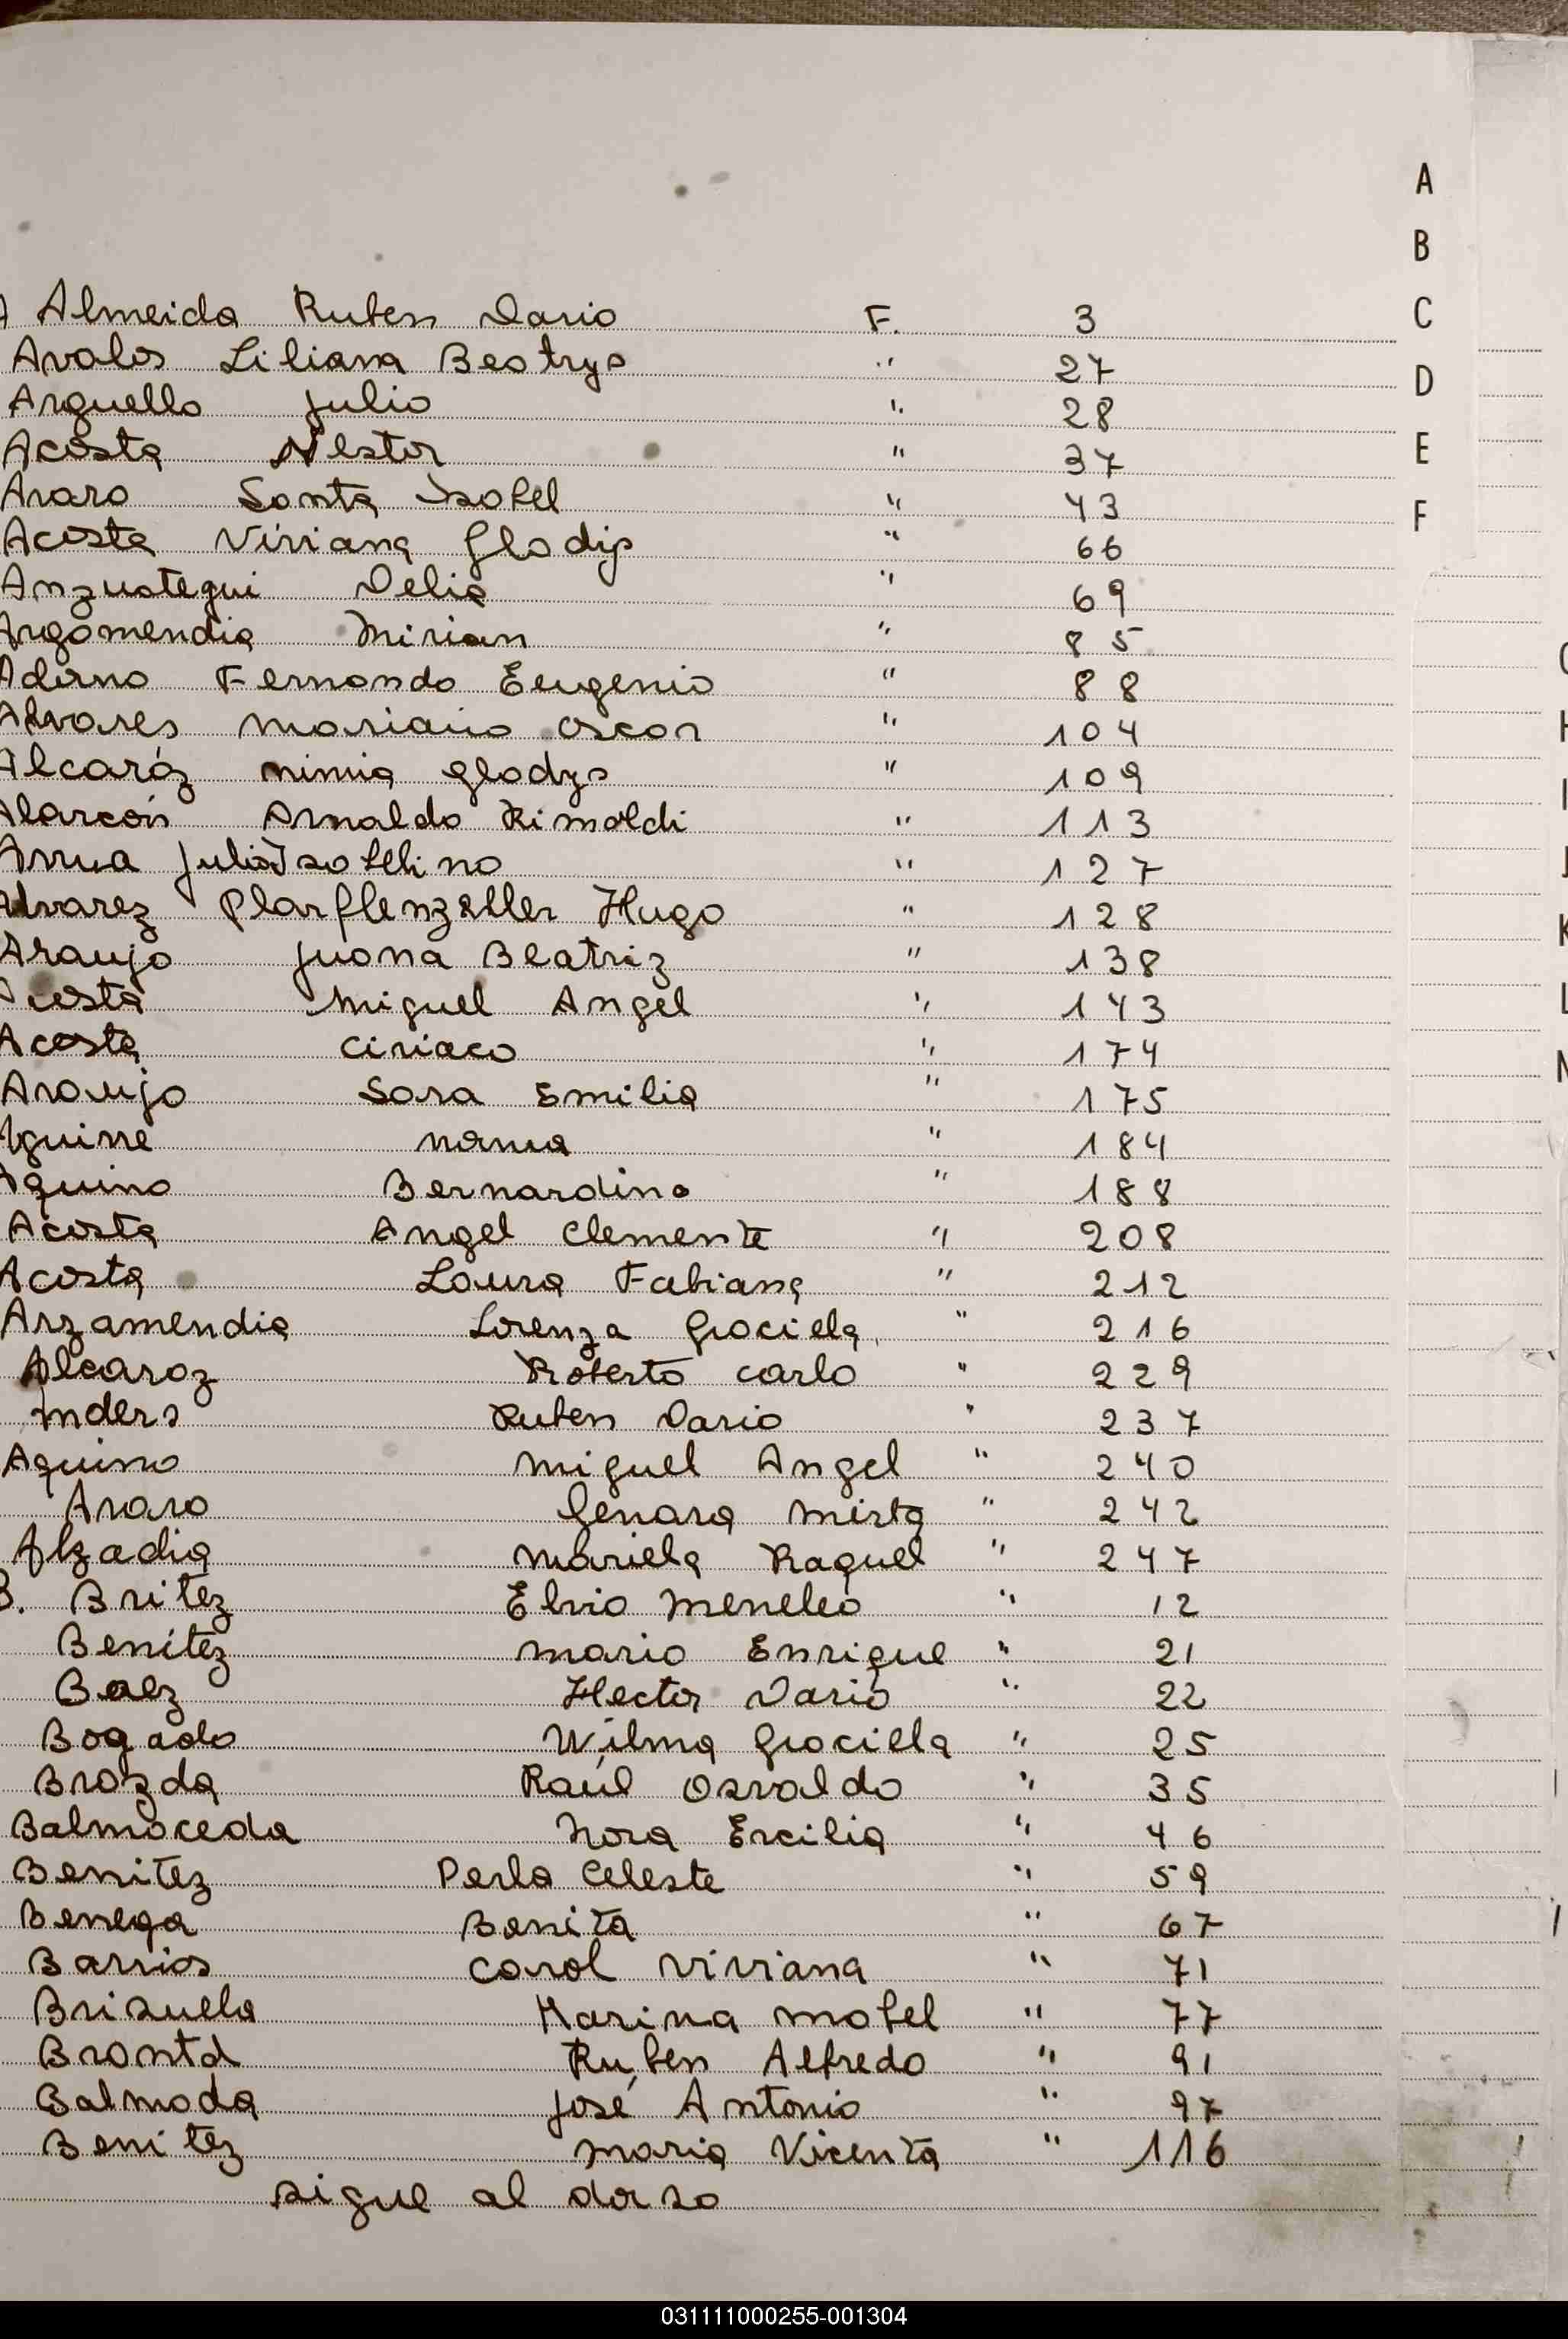 A
B
C
D
E
F
A Almeida Ruben Dario F. 3
Avalos Liliana Beatrys " 27
Arguello Julio " 28
Acosta Nestor " 37
Araro Santa Isabel " 43
Acosta Viviana Gladys " 66
Anzuategui Delia " 69
Argomendia Mirian " 85
Adorno Fernando Eugenio " 88
Alvares Mariano Oscar " 104
Alcaráz Nimia Gladys " 109
Alarcón Arnaldo Rimoldi " 113
Arrua Julia Isabelina " 127
Alvarez Hugo " 128
Araujo Juana Beatriz " 138
Acosta Miguel Angel " 143
Acosta Ciriaco " 174
Araujo Sara Emilia " 175
Aguirre " 184
Aquino Bernardino " 188
Acosta Angel Clemente " 208
Acosta Laura Fabiana " 212
Arzamendia Lorenza Graciela " 216
Alcaraz Roberto Carlo " 229
Ruben Dario " 237
Aquino Miguel Angel " 240
Araro Genara Mirta " 242
Mariela Raquel " 247
B. Britez Elvio Meneleo " 12
Benítez Mario Enrique " 21
Baez Hector Dario " 22
Bogado Wilma Graciela " 25
Brozda Raúl Osvaldo " 35
Balmaceda Nora Ercilia " 46
Benitez Perla Celeste " 59
Benega Benita " 67
Barrios Carol Viviana " 71
Brisuela Karina Mabel " 77
Brontd Ruben Alfredo " 91
Balmoda José Antonio " 97
Benitez Maria Vicenta " 116
sigue al dorso
031111000255-001304